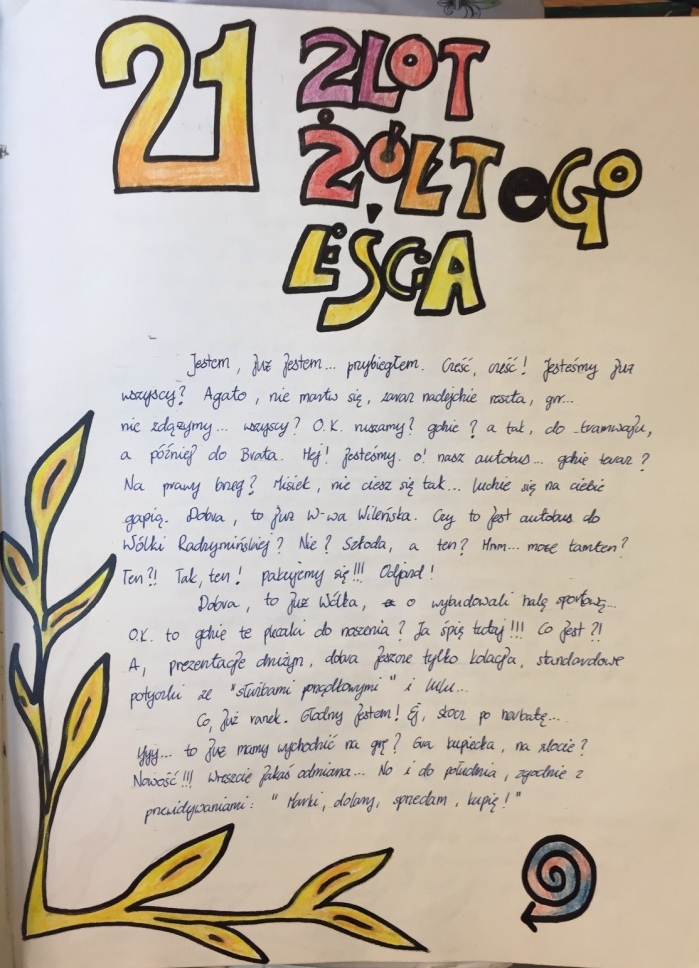 21 ZLOT
ŻÓŁTEGO
LIŚCIA
Jestem, już jestem... przybiegłem. Cześć, cześć! Jesteśmy już
wszyscy? Agato, nie martw się, zaraz nadejdzie reszta, grr...
nie zdążymy... wszyscy? O.K. ruszamy? gdzie? a tak, do tramwaju,
a później do Brata. Hej! Jesteśmy. o! nasz autobus... gdzie teraz?
Na prawy brzeg? Misiek, nie ciesz się tak... ludzie się na ciebie
gapią. Dobra, to już W-wa Wileńska. Czy to jest autobus do
Wólki Radzymińskiej? Nie? Szkoda, a ten? Hmm... może tamten?
Ten?! Tak, ten! pakujemy się!!! Odjazd!
Dobra, to już Wólka, o wybudowali halę sportową...
O.K. to gdzie te plecaki do noszenia? Ja śpię tutaj!!! Co jest?!
A, prezentacje drużyn, dobra jeszcze tylko kolacja, standardowe
potyczki ze "służbami porządkowymi" i lulu...
Co, już ranek. Głodny jestem! Ej, skocz po herbatę...
Yyy... to już mamy wychodzić na grę? Gra kupiecka, na zlocie?
Nowość!!! Wreszcie jakaś odmiana... No i do południa, zgodnie z
przewidywaniami: "Marki, dolary, sprzedam, kupię!"